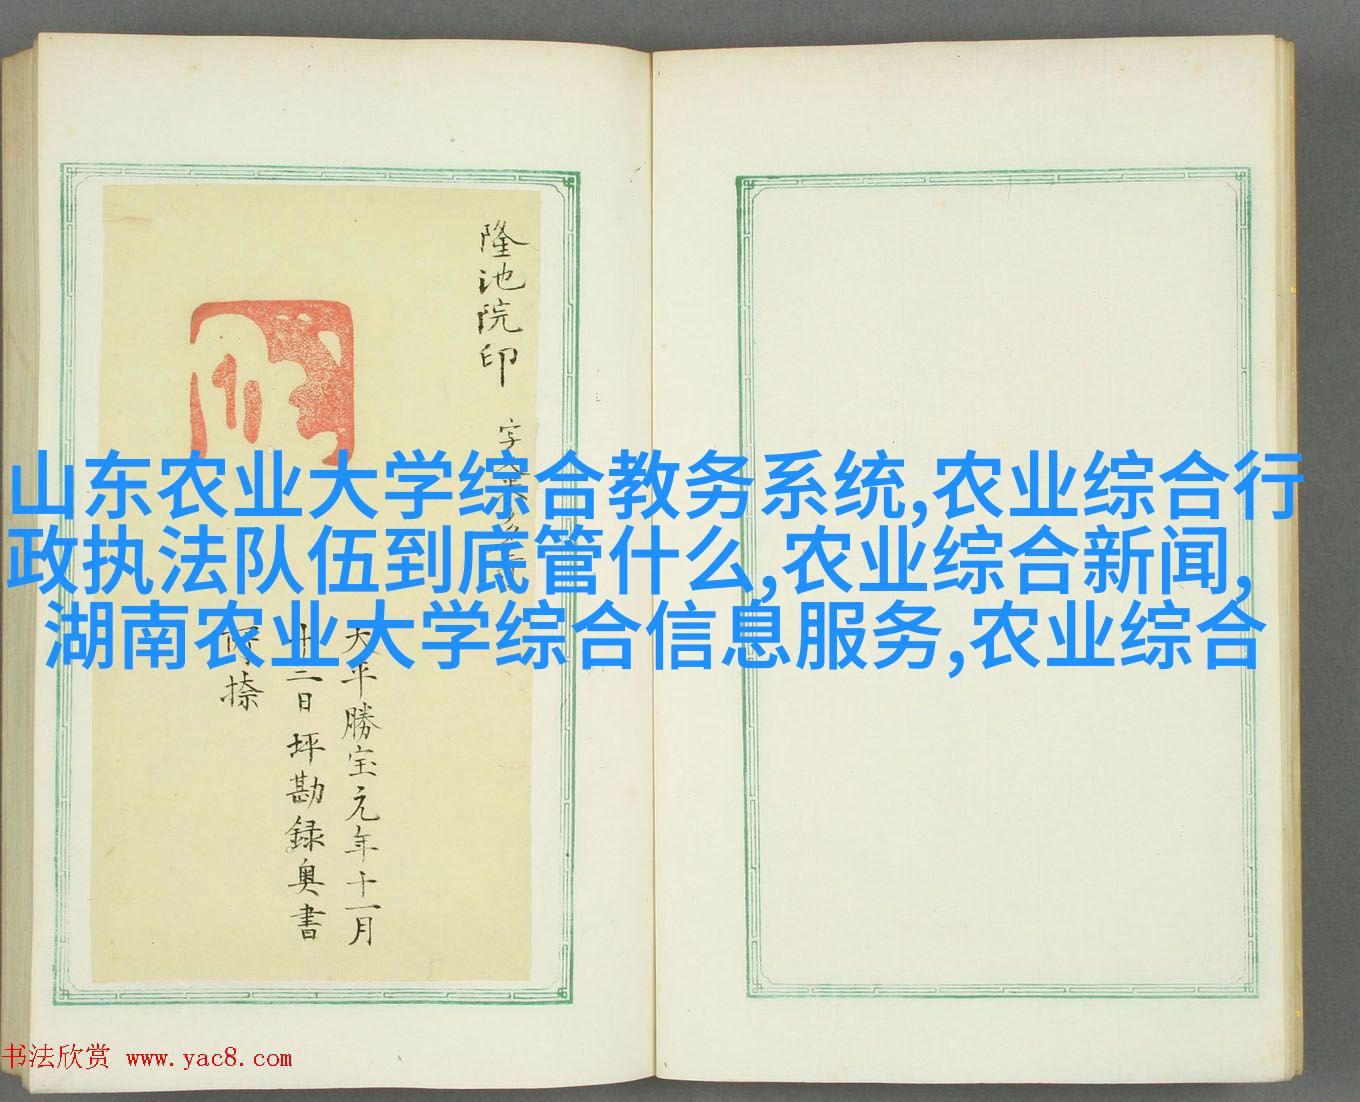 山东农业大学综合教务系统,农业综合行
政执法队伍到底管什么,农业综合新闻,
湖南农业大学综合信息服务,农业综合
隆池院印
天平勝宝元年十一月
廿三日坪勘録奥書
所捺
书法欣赏 www.yac8.com